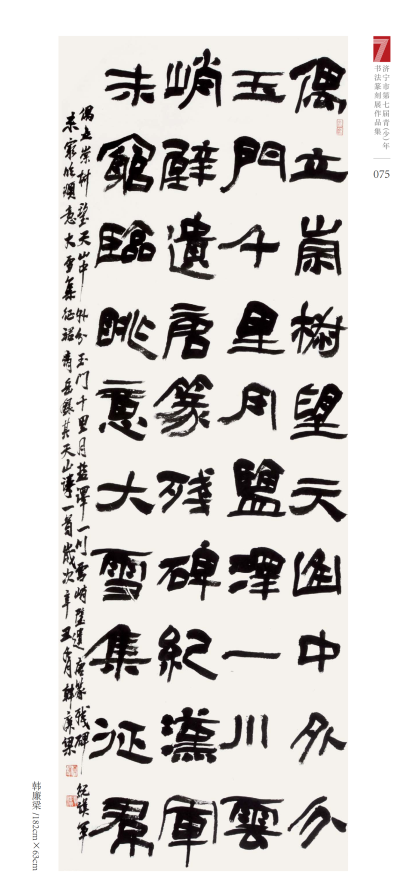 7
济宁市第七届青(少)年
书法篆刻展作品集
075
偶立崇樹望天山中外分
玉門千里月鹽澤一川雲
峭壁遺唐篆殘碑紀漢軍
未窮臨眺意大雪集征裙
偶立崇树望天山中外分玉门千里月盐泽一川雲峭壁遗唐篆残碑纪漢军
未窮临眺意大雪集征裙清岳銀其天山诗一首岁次辛丑冬月韩廉梁
韩廉梁/182cm×63cm